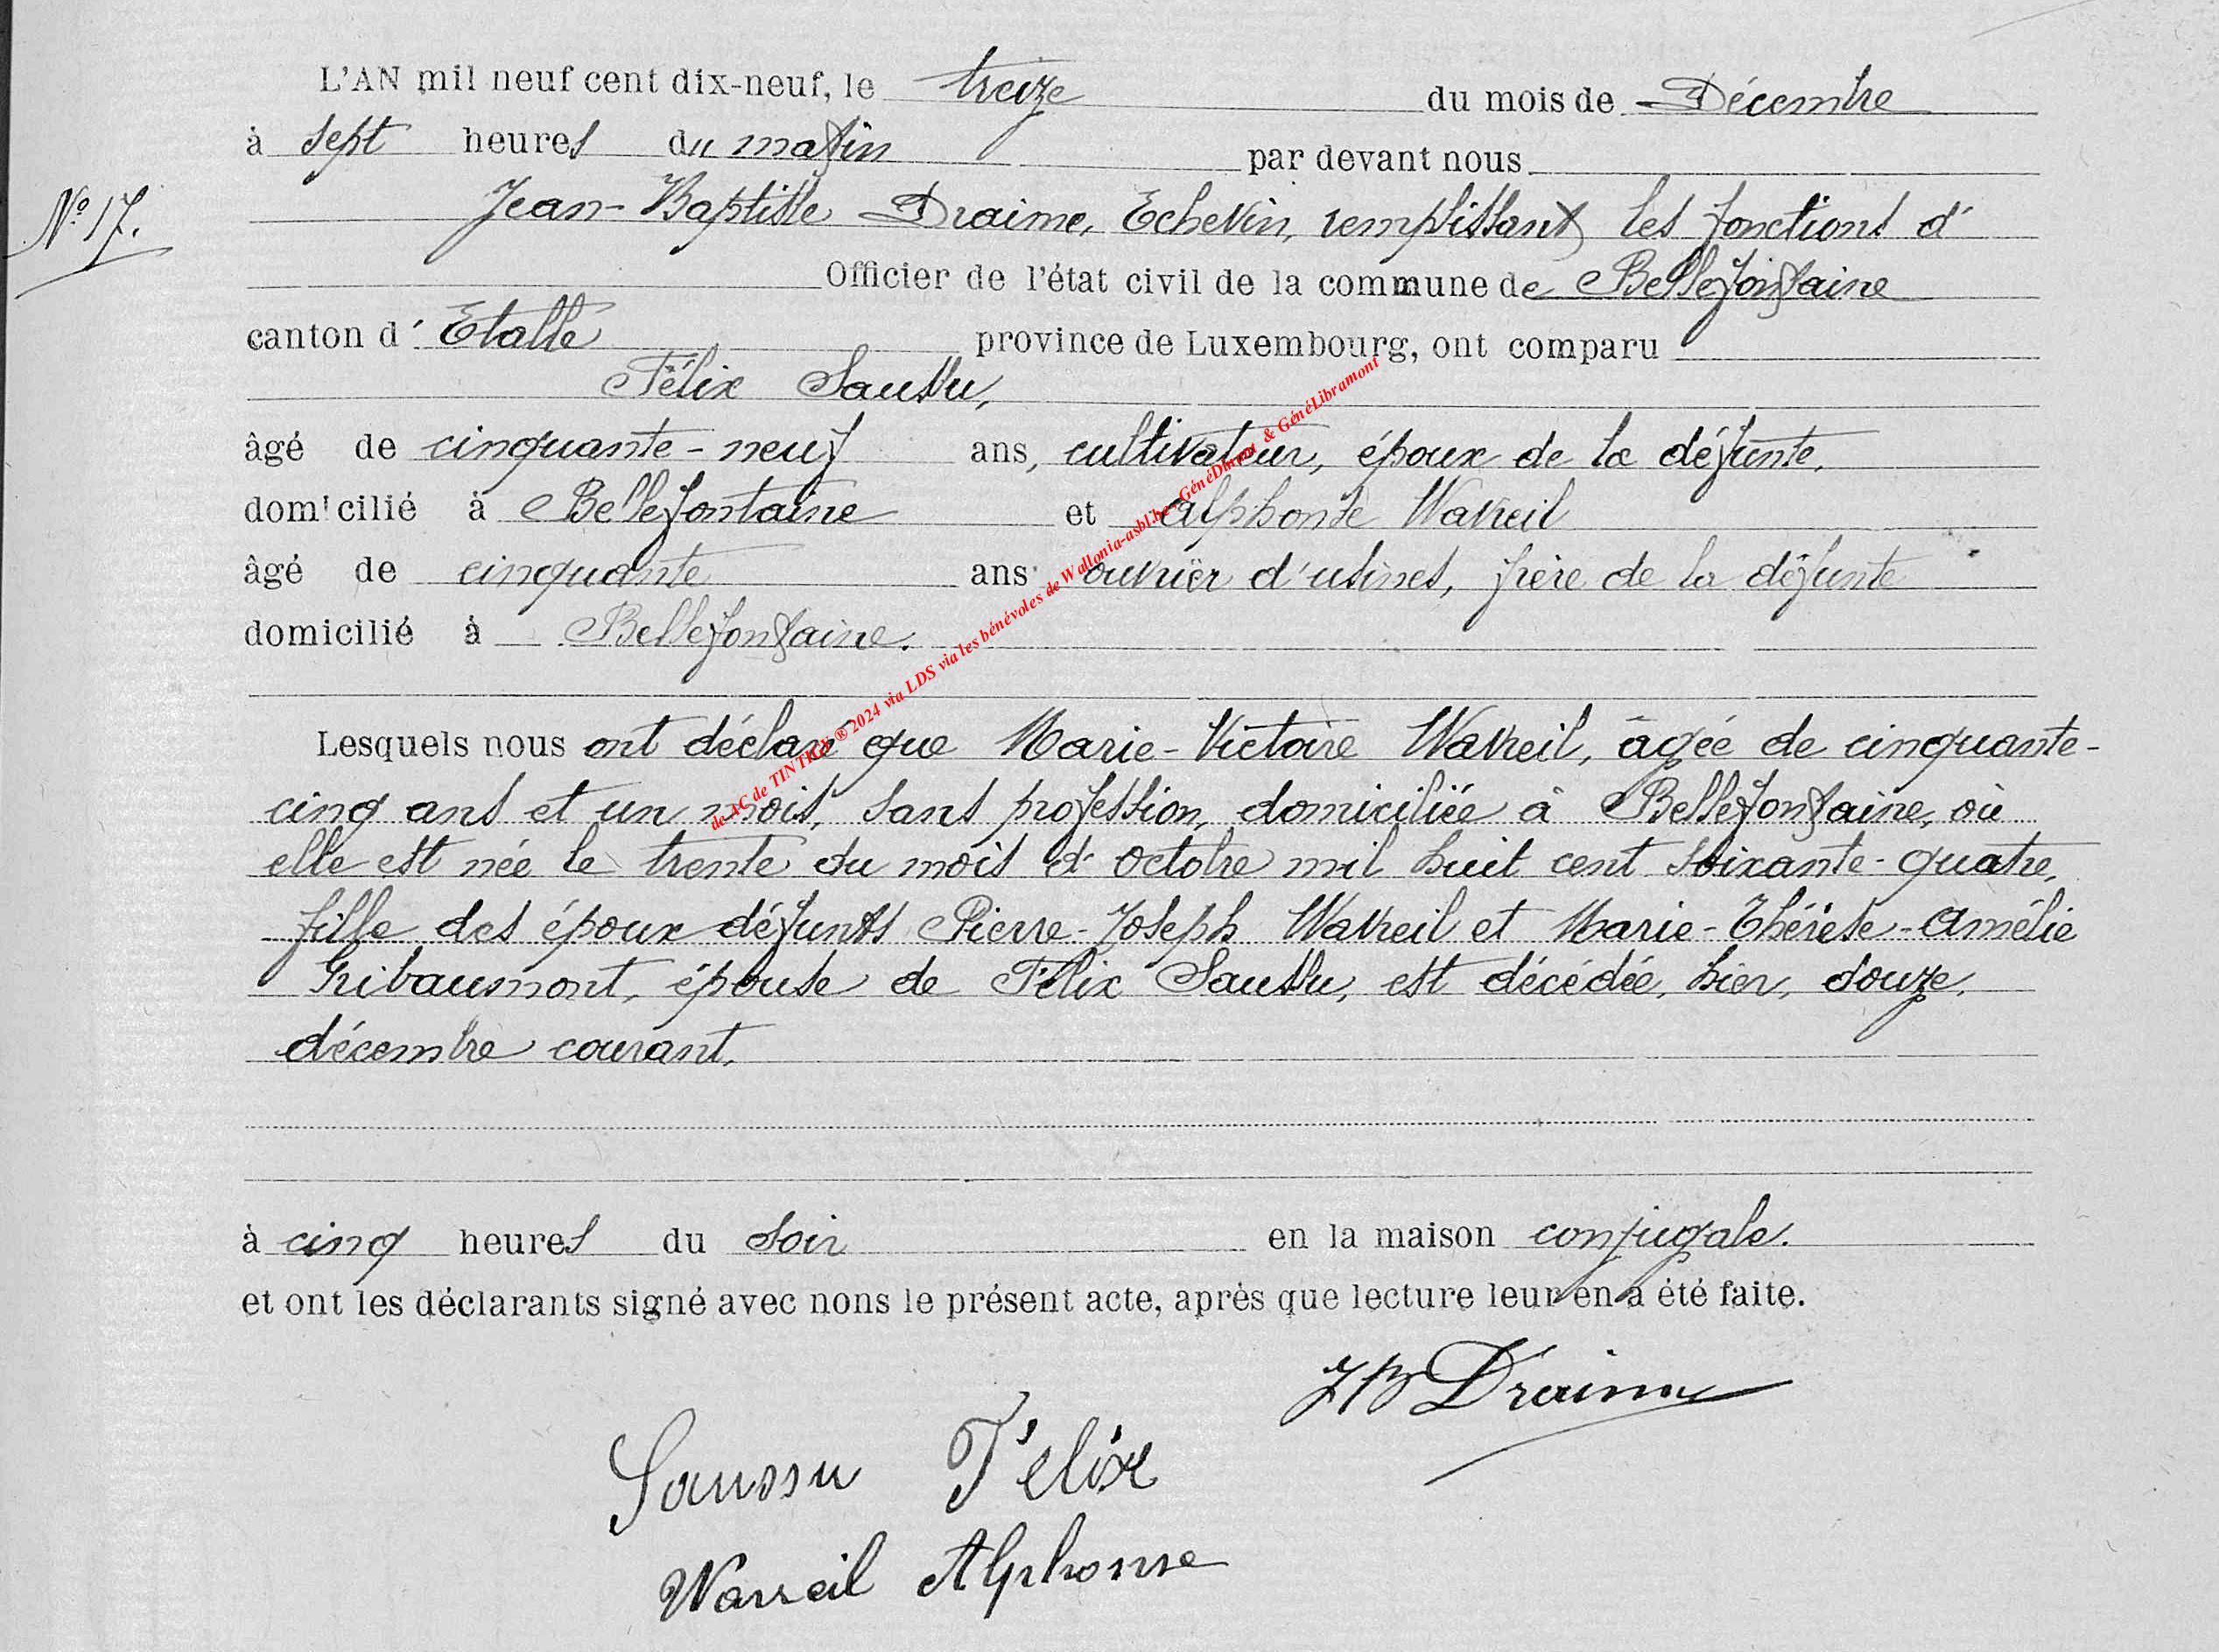 L'AN mil neuf cent dix-neuf, le treize du mois de Décembre
à sept heures du matin par devant nous
N° 17.
Jean-Baptiste Draime, Echevin, remplissant les fonctions d'
Officier de l'état civil de la commune de Bellefontaine
canton d' Etalle province de Luxembourg, ont comparu
Félix Saussu,
âgé de cinquante-neuf ans, cultivateur, époux de la défunte,
domicilié à Bellefontaine et Alphonse Wavreil
âgé de cinquante ans ouvrier d'usines, frère de la défunte
domicilié à Bellefontaine.
Lesquels nous ont déclaré que Marie-Victoire Wavreil, âgée de cinquante-
cinq ans et un mois, sans profession, domiciliée à Bellefontaine, où
elle est née le trente du mois d'octobre mil huit cent soixante-quatre,
fille des époux défunts Pierre-Joseph Wavreil et Marie-Thérèse-Amélie
Gribaumont, épouse de Félix Saussu, est décédée, hier, douze,
décembre courant,
à cinq heures du soir en la maison conjugale.
et ont les déclarants signé avec nons le présent acte, après que lecture leur en a été faite.
JB Draime
Saussu Félix
Wavreil Alphonse
de AC de TINTIGY ® 2024 via LDS via les bénévoles de Wallonia-asbl.be GénéDinant & GénéLibramont